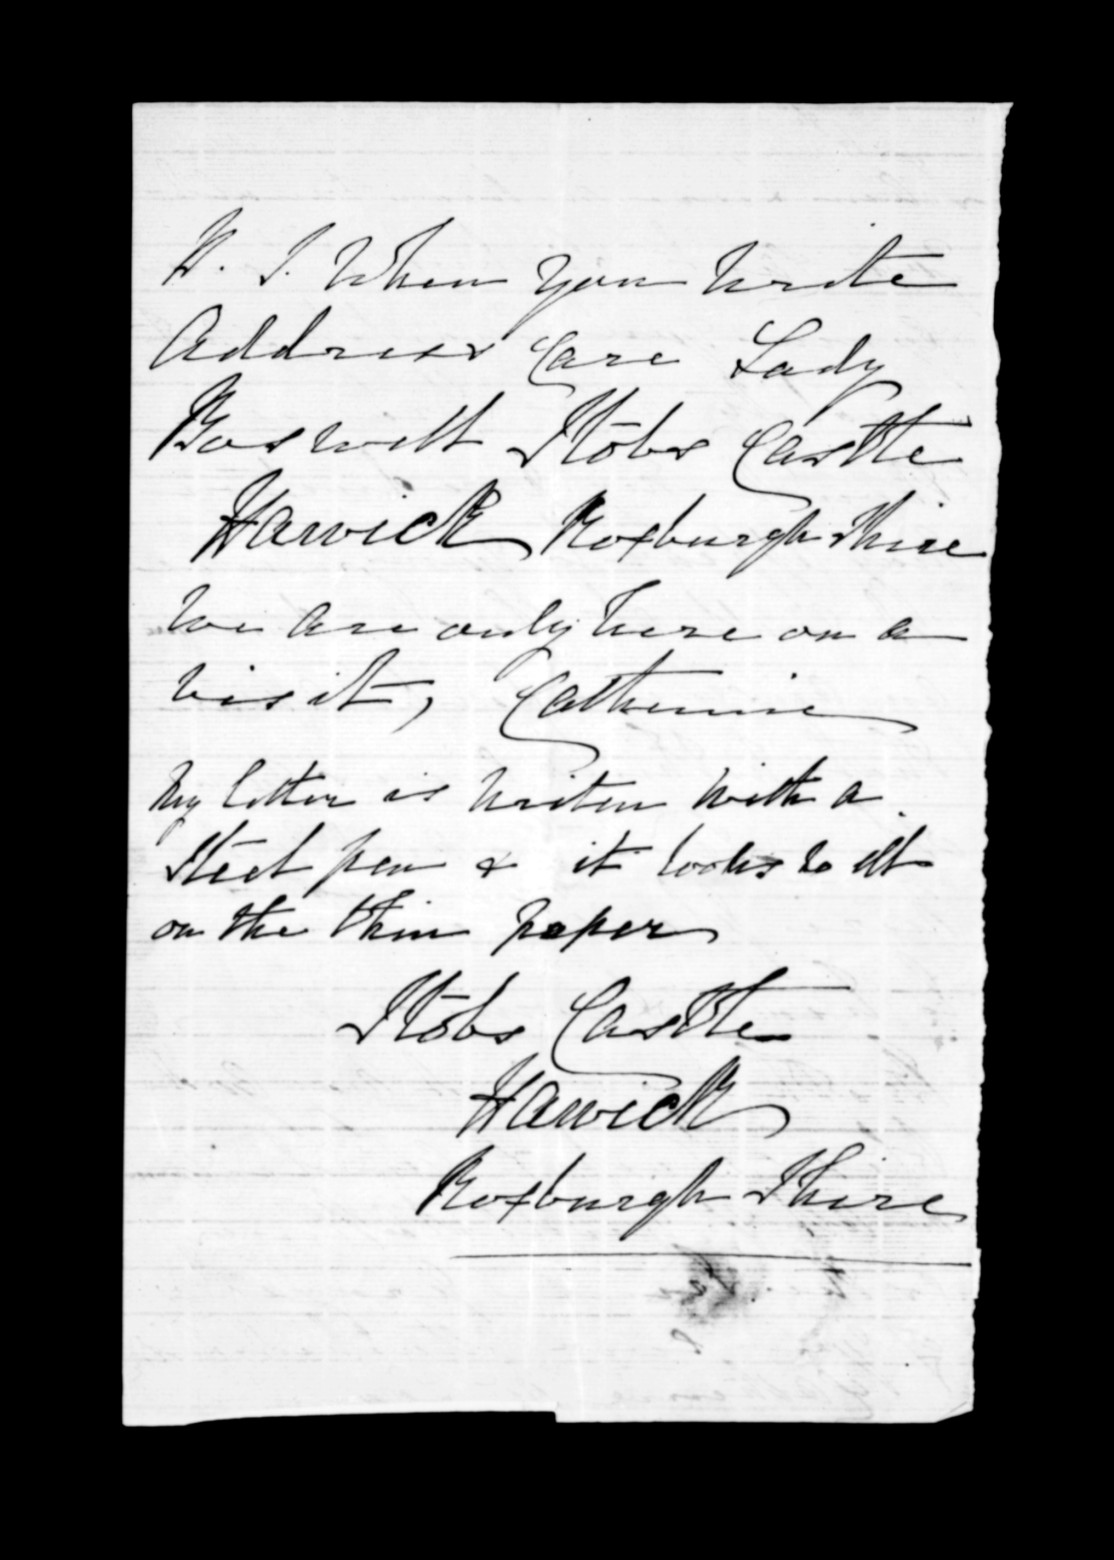 P. S. When you write
Address Care Lady
Boswell Stobs Castle
Harwick Roxburgh Shire
We are only here on a
visit, Catherine
My letter is writen with a
Steel pen & it looks so ill
on the thin paper
Stobs Castle
Harwick
Roxburgh Shire